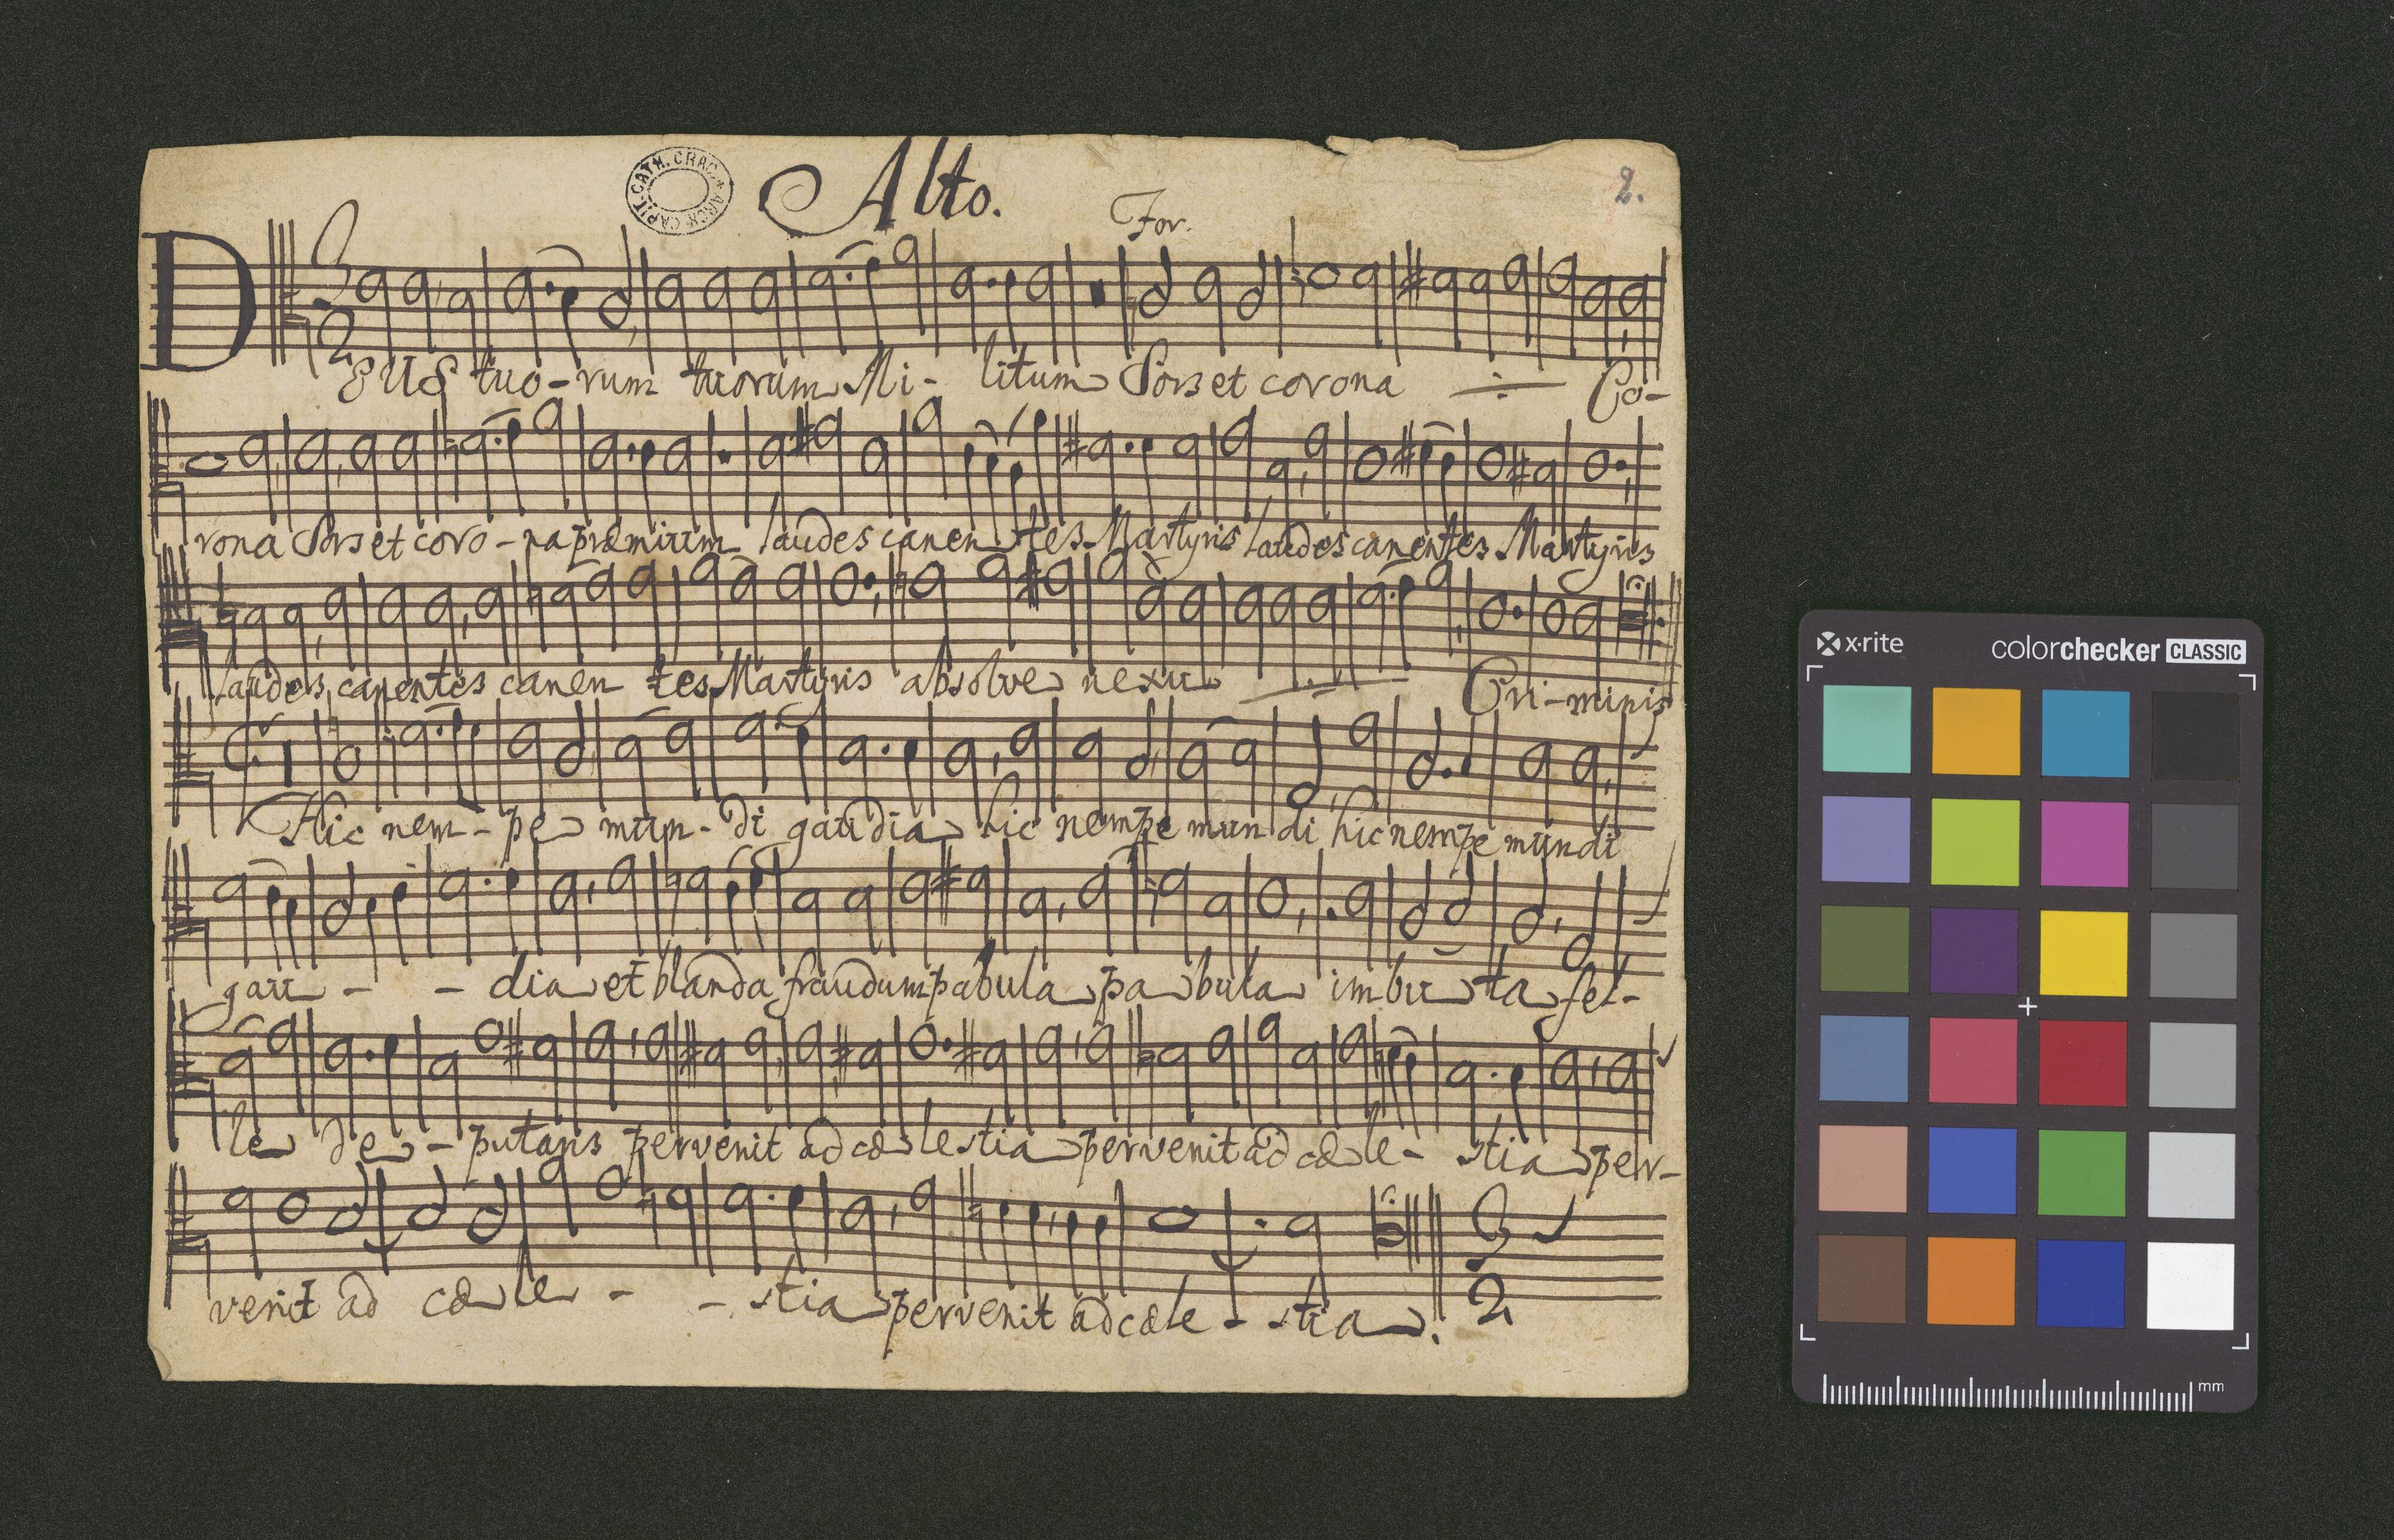 CAPIT. CATH. CRAC. ARCH.
Alto.
2.
For.
3
2
DEUS tuo-rum tuorum Mi- litum Sors et corona Co-
rona Sors et coro-na præmium laudes canen tes Martyris laudes canentes Martyris
laudes canentes canen tes Martyris absolve nexu Cri-minis
Hic nem-pe mun-di gaudia hic nempe mundi hic nempe mundi
gau - - dia et blanda fraudum pabula pabula imbu ta fel-
le de-putans pervenit ad cæ lestia pervenit ad cæ le- stia per-
venit ad cæ le - - stia pervenit ad cæle - stia.
3
2
x·rite
colorchecker CLASSIC
mm